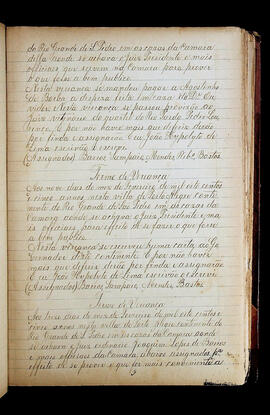 do Rio Grande de S. Pedro em as cazas da Camara
della donde se achava o Juiz Presidente e mais
officiaes que servem na Camara para prover
o que fosse a bem publico.
Nesta vereança se mandou pagar a Agostinho
de Borba a despeza feita em caza do Dr. Ou
vidor e Nesta vereança se passou provisão ao
Juiz vetenario do quartel do Rio Pardo Pedro
e por não haver mais que deferir derão
por finda e assignarão e eu João Hypolyto de
Lima escrivão o escrevi
(Assignados) Barros Sampaio, Mendes, Rib.º, Bastos.
Termo de Vreança
Aos nove dias do mez de Fevereiro de mil oito centos
e cinco annos nesta villa de Porto Alegre Conti-
nente do Rio Grande de São Pedro em as cazas da
Camara donde se achava o Juiz Presidente e ma-
is officiaes, para effeito de se fazer o que fosse
a bem publico.
Nesta vereança se escreveu huma carta ao Go-
vernador deste continente. E por não haver
mais que deferir derão por finda e assignarão
e eu João Hypolyto de Lima escrivão o escrevi
(Assignados) Barros, Sampaio, Mendes, Bastos
Termo de Vereança
Aos dias do mez de Fevereiro de mil oito centos e
cinco annos nesta villa de Porto Alegre continente do
Rio Grande de S. Pedro em as cazas da Camara donde
se achava o Juiz ordinario Joaquim Lopes de Barros
e mais officiaes da Camara abaixo assignados pª
effeito de se prover o que for mais conveniente a